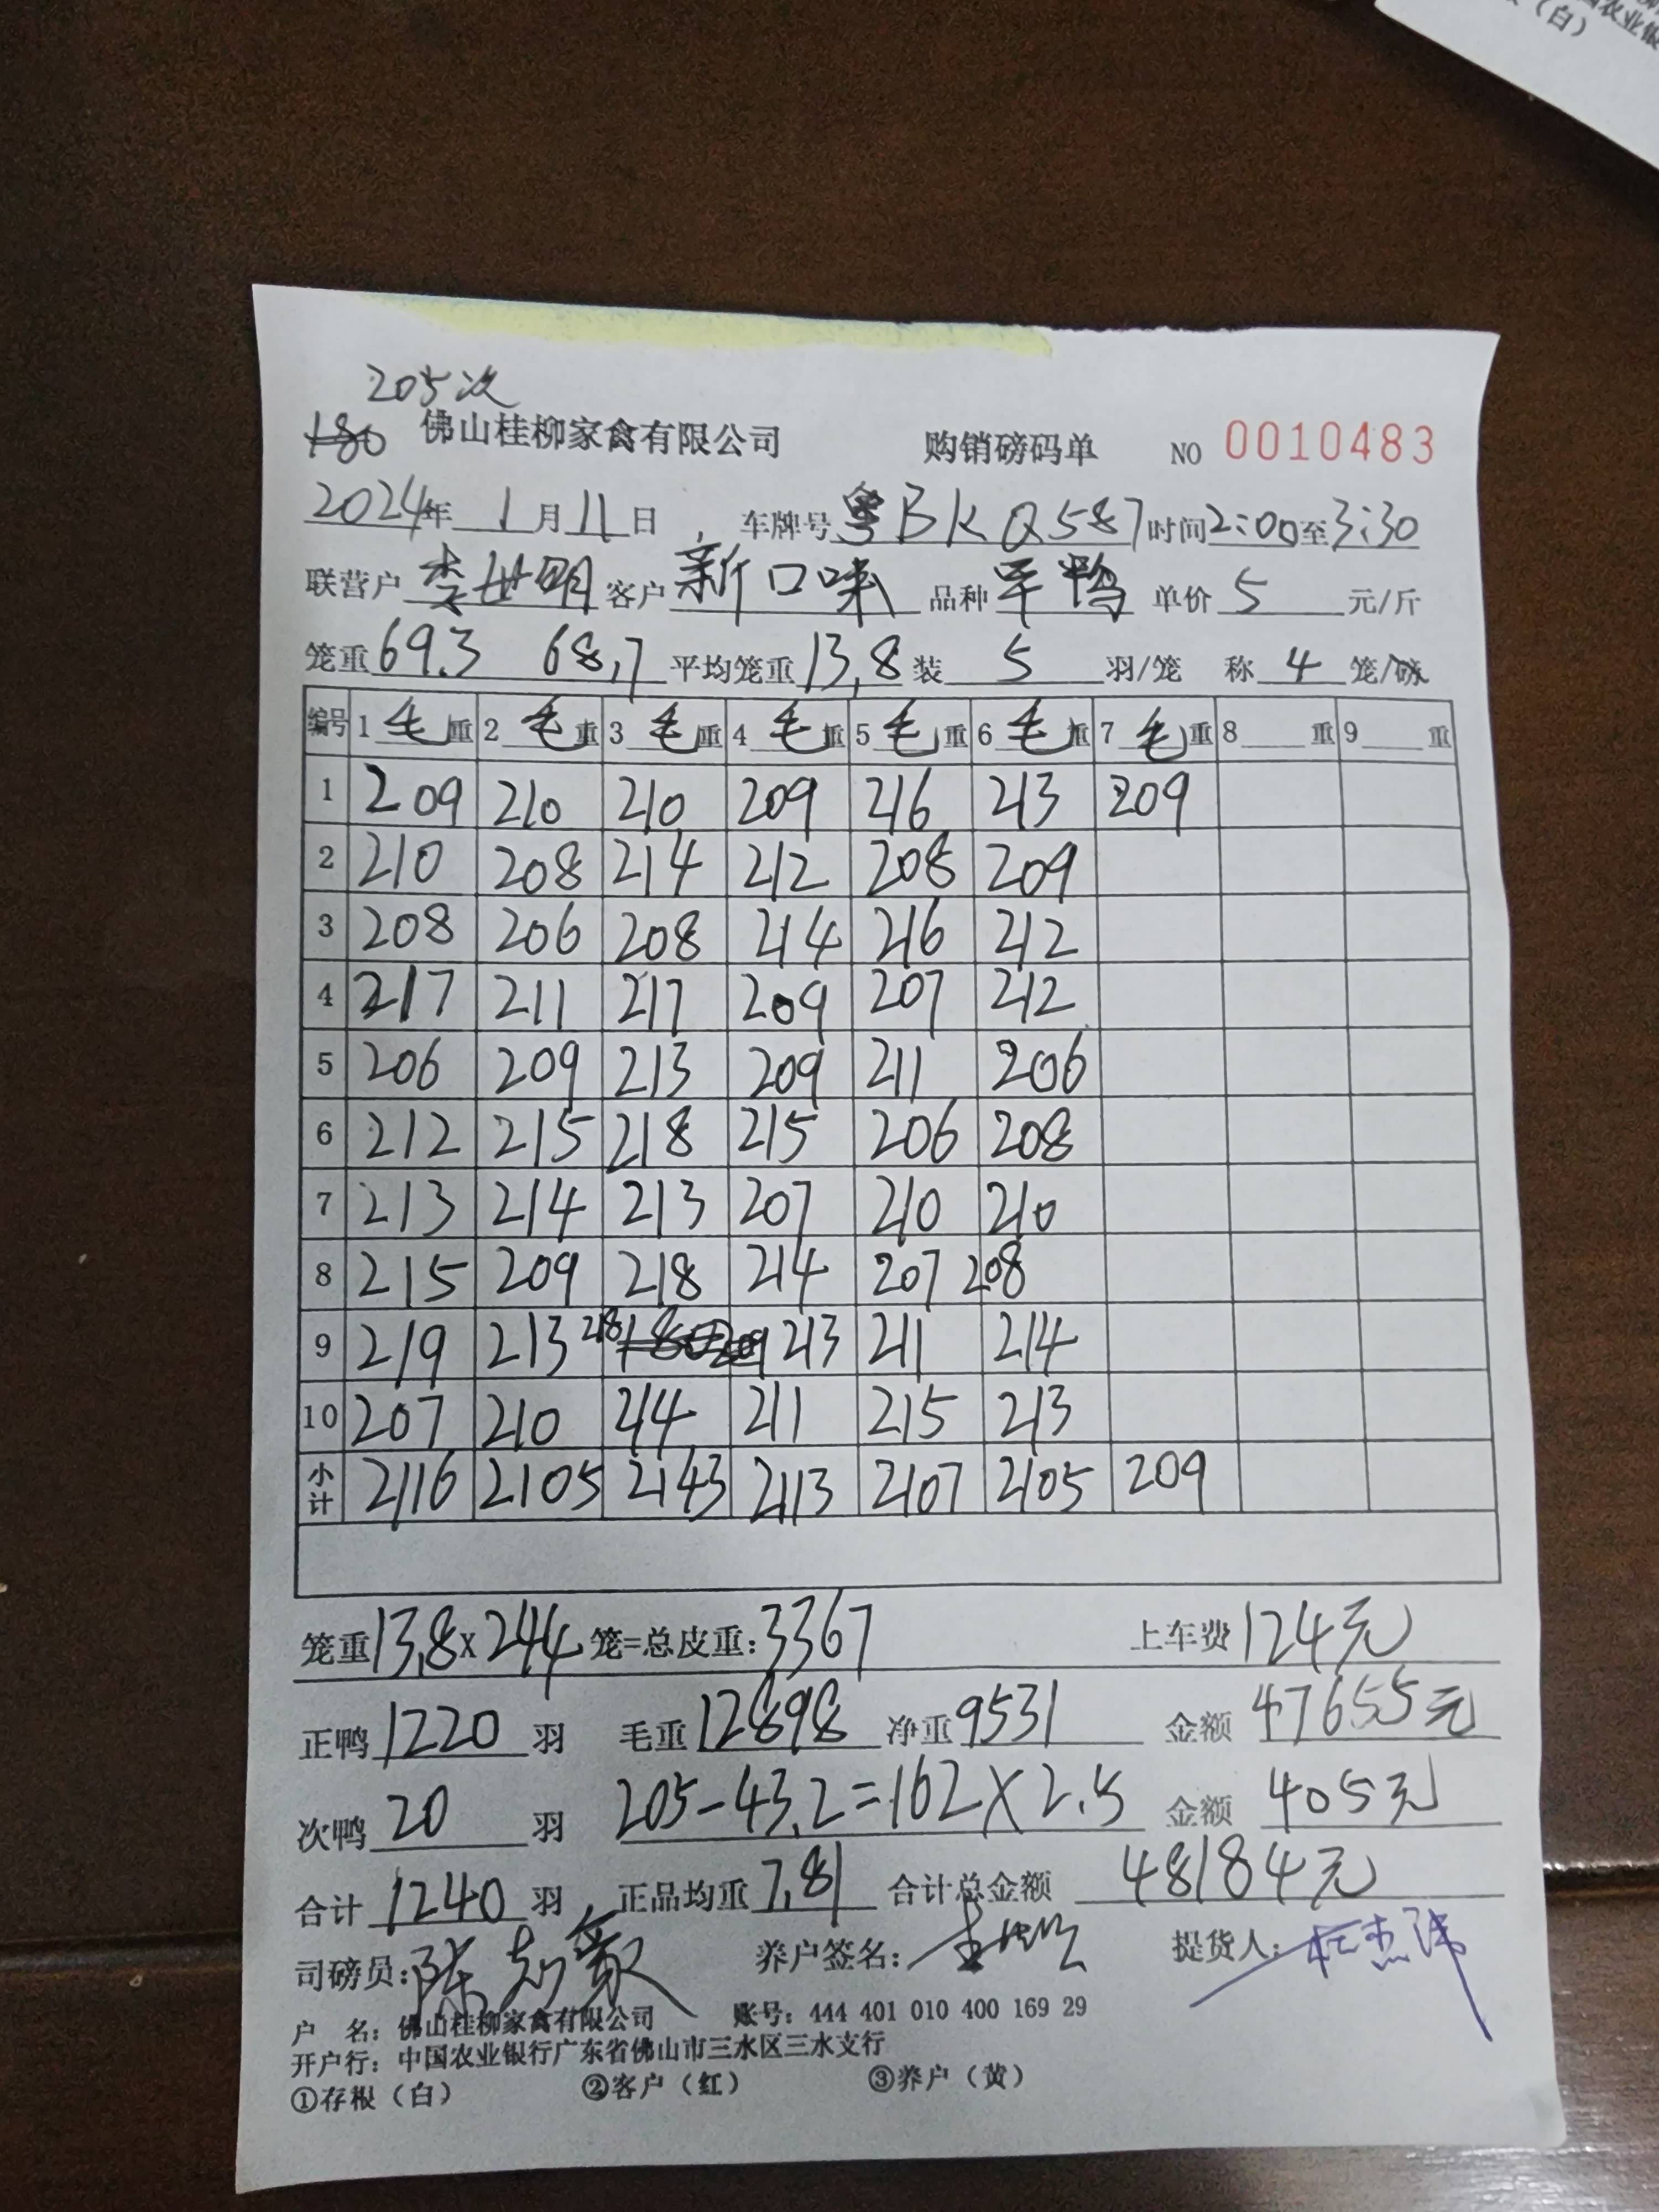 国农业银
（白）
205次
180 佛山桂柳家禽有限公司 购销磅码单 NO 0010483
2024年 1月11日 车牌号 粤BKQ587 时间2:00至3:30
联营户 李世明 客户 新口味 品种 旱鸭 单价 5 元/斤
笼重 69.3 68.7 平均笼重 13.8 装 5 羽/笼 称 4 笼/磅
编号 1 毛 重 2 毛 重 3 毛 重 4 毛 重 5 毛 重 6 毛 重 7 毛 重 8 重 9 重
1 209 210 210 209 216 213 209
2 210 208 214 212 208 209
3 208 206 208 214 216 212
4 217 211 217 209 207 212
5 206 209 213 209 211 206
6 212 215 218 215 206 208
7 213 214 213 207 210 210
8 215 209 218 214 207 208
9 219 213 218 213 211 214
10 207 210 214 211 215 213
小计 2116 2105 2143 2113 2107 2105 209
笼重 13.8×244 笼=总皮重：3367 上车费 124元
正鸭 1220 羽 毛重 12898 净重 9531 金额 47655元
次鸭 20 羽 205-43.2=162×2.5 金额 405元
合计 1240 羽 正品均重 7.81 合计总金额 48184元
司磅员： 养户签名： 提货人：
户 名：佛山桂柳家禽有限公司 账号：444 401 010 400 169 29
开户行：中国农业银行广东省佛山市三水区三水支行
①存根（白） ②客户（红） ③养户（黄）